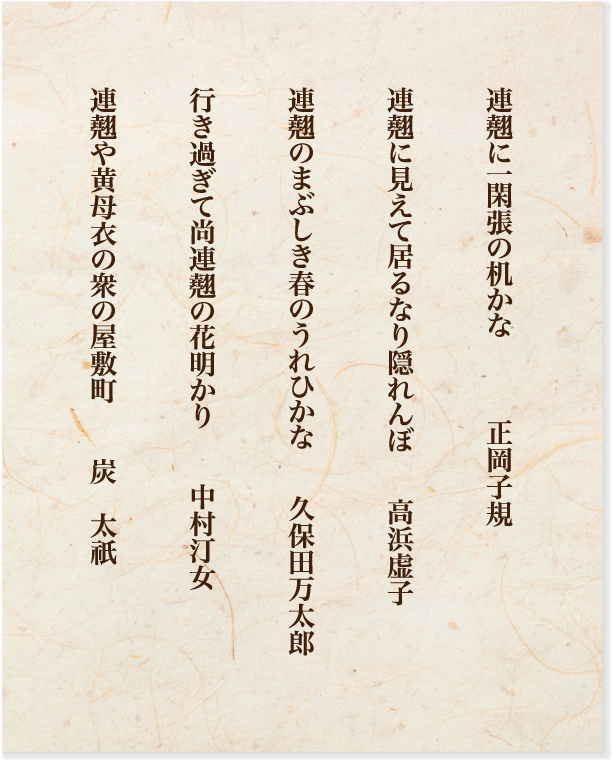 連翹に一閑張の机かな　正岡子規
連翹に見えて居るなり隠れんぼ　高浜虚子
連翹のまぶしき春のうれひかな　久保田万太郎
行き過ぎて尚連翹の花明かり　中村汀女
連翹や黄母衣の衆の屋敷町　炭　太祇